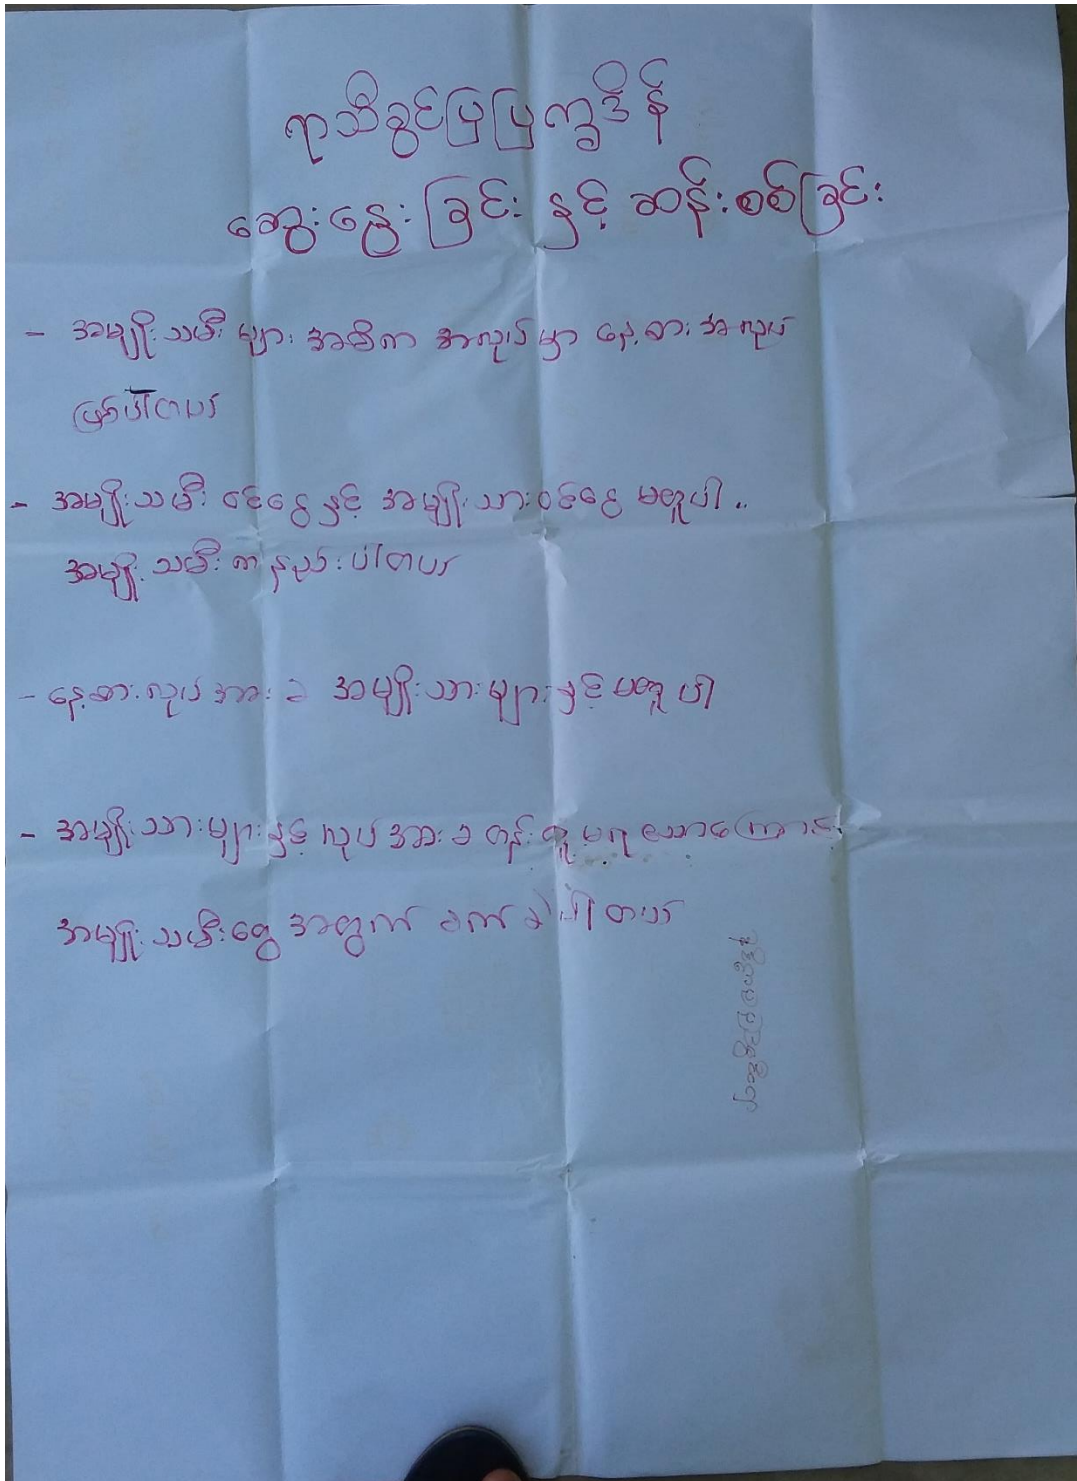 ရာသီခွင်ပြပြက္ခဒိန်
ဆွေးနွေးခြင်း နှင့် ဆန်းစစ်ခြင်း
- အမျိုးသမီးများ အဓိက အလုပ်မှာ နေ့စားအလုပ်
ဖြစ်ပါတယ်
- အမျိုးသမီး ဝင်ငွေနှင့် အမျိုးသားဝင်ငွေ မတူပါ..
အမျိုးသမီးက နည်းပါတယ်
- နေ့စားလုပ်အားခ အမျိုးသားများနှင့်မတူပါ
- အမျိုးသားများနှင့် လုပ်အားခ တန်းတူ မရသောကြောင့်
အမျိုးသမီးတွေအတွက် ခက်ခဲပါတယ်